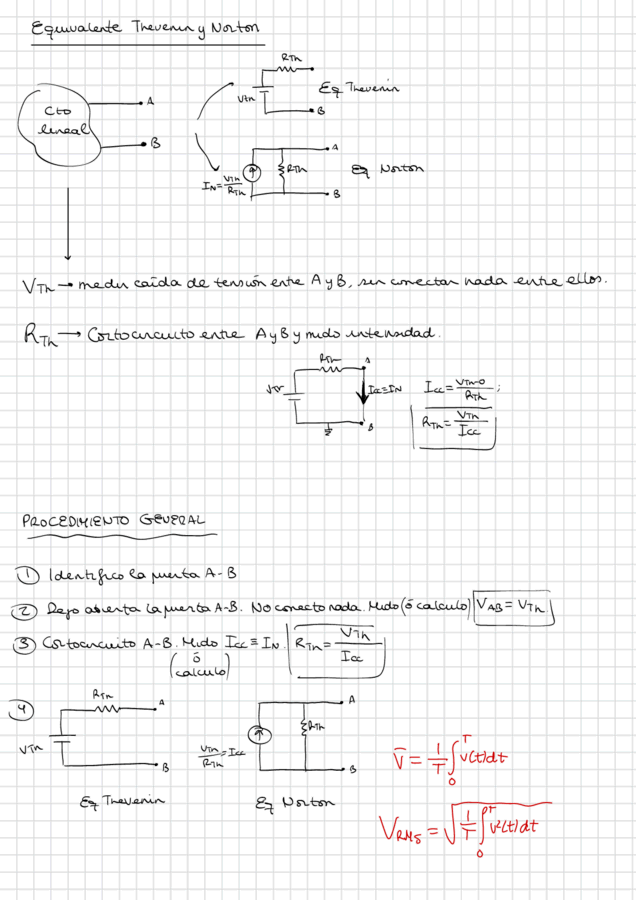 Equivalente Thevenin y Norton
RTh
A
Cto
lineal
B
VTh
Eq Thevenin
B
A
IN = VTh/RTh
RTh
Eq Norton
B
VTh → medir caída de tensión entre A y B, sin conectar nada entre ellos.
RTh → Cortocircuito entre A y B y mido intensidad.
RTh
A
VTh
ICC ≡ IN
B
ICC = VTh-0/RTh ;
RTh = VTh/ICC
PROCEDIMIENTO GENERAL
① Identifico la puerta A-B
② Dejo abierta la puerta A-B. No conecto nada. Mido (ó calculo) VAB = VTh
③ Cortocircuito A-B. Mido ICC ≡ IN. RTh = VTh/ICC
( ó
calculo )
④
RTh
A
VTh
B
Eq Thevenin
A
VTh/RTh = ICC
RTh
B
Eq Norton
V̅ = 1/T ∫₀ᵀ v(t)dt
VRMS = √(1/T ∫₀ᵀ v²(t)dt)